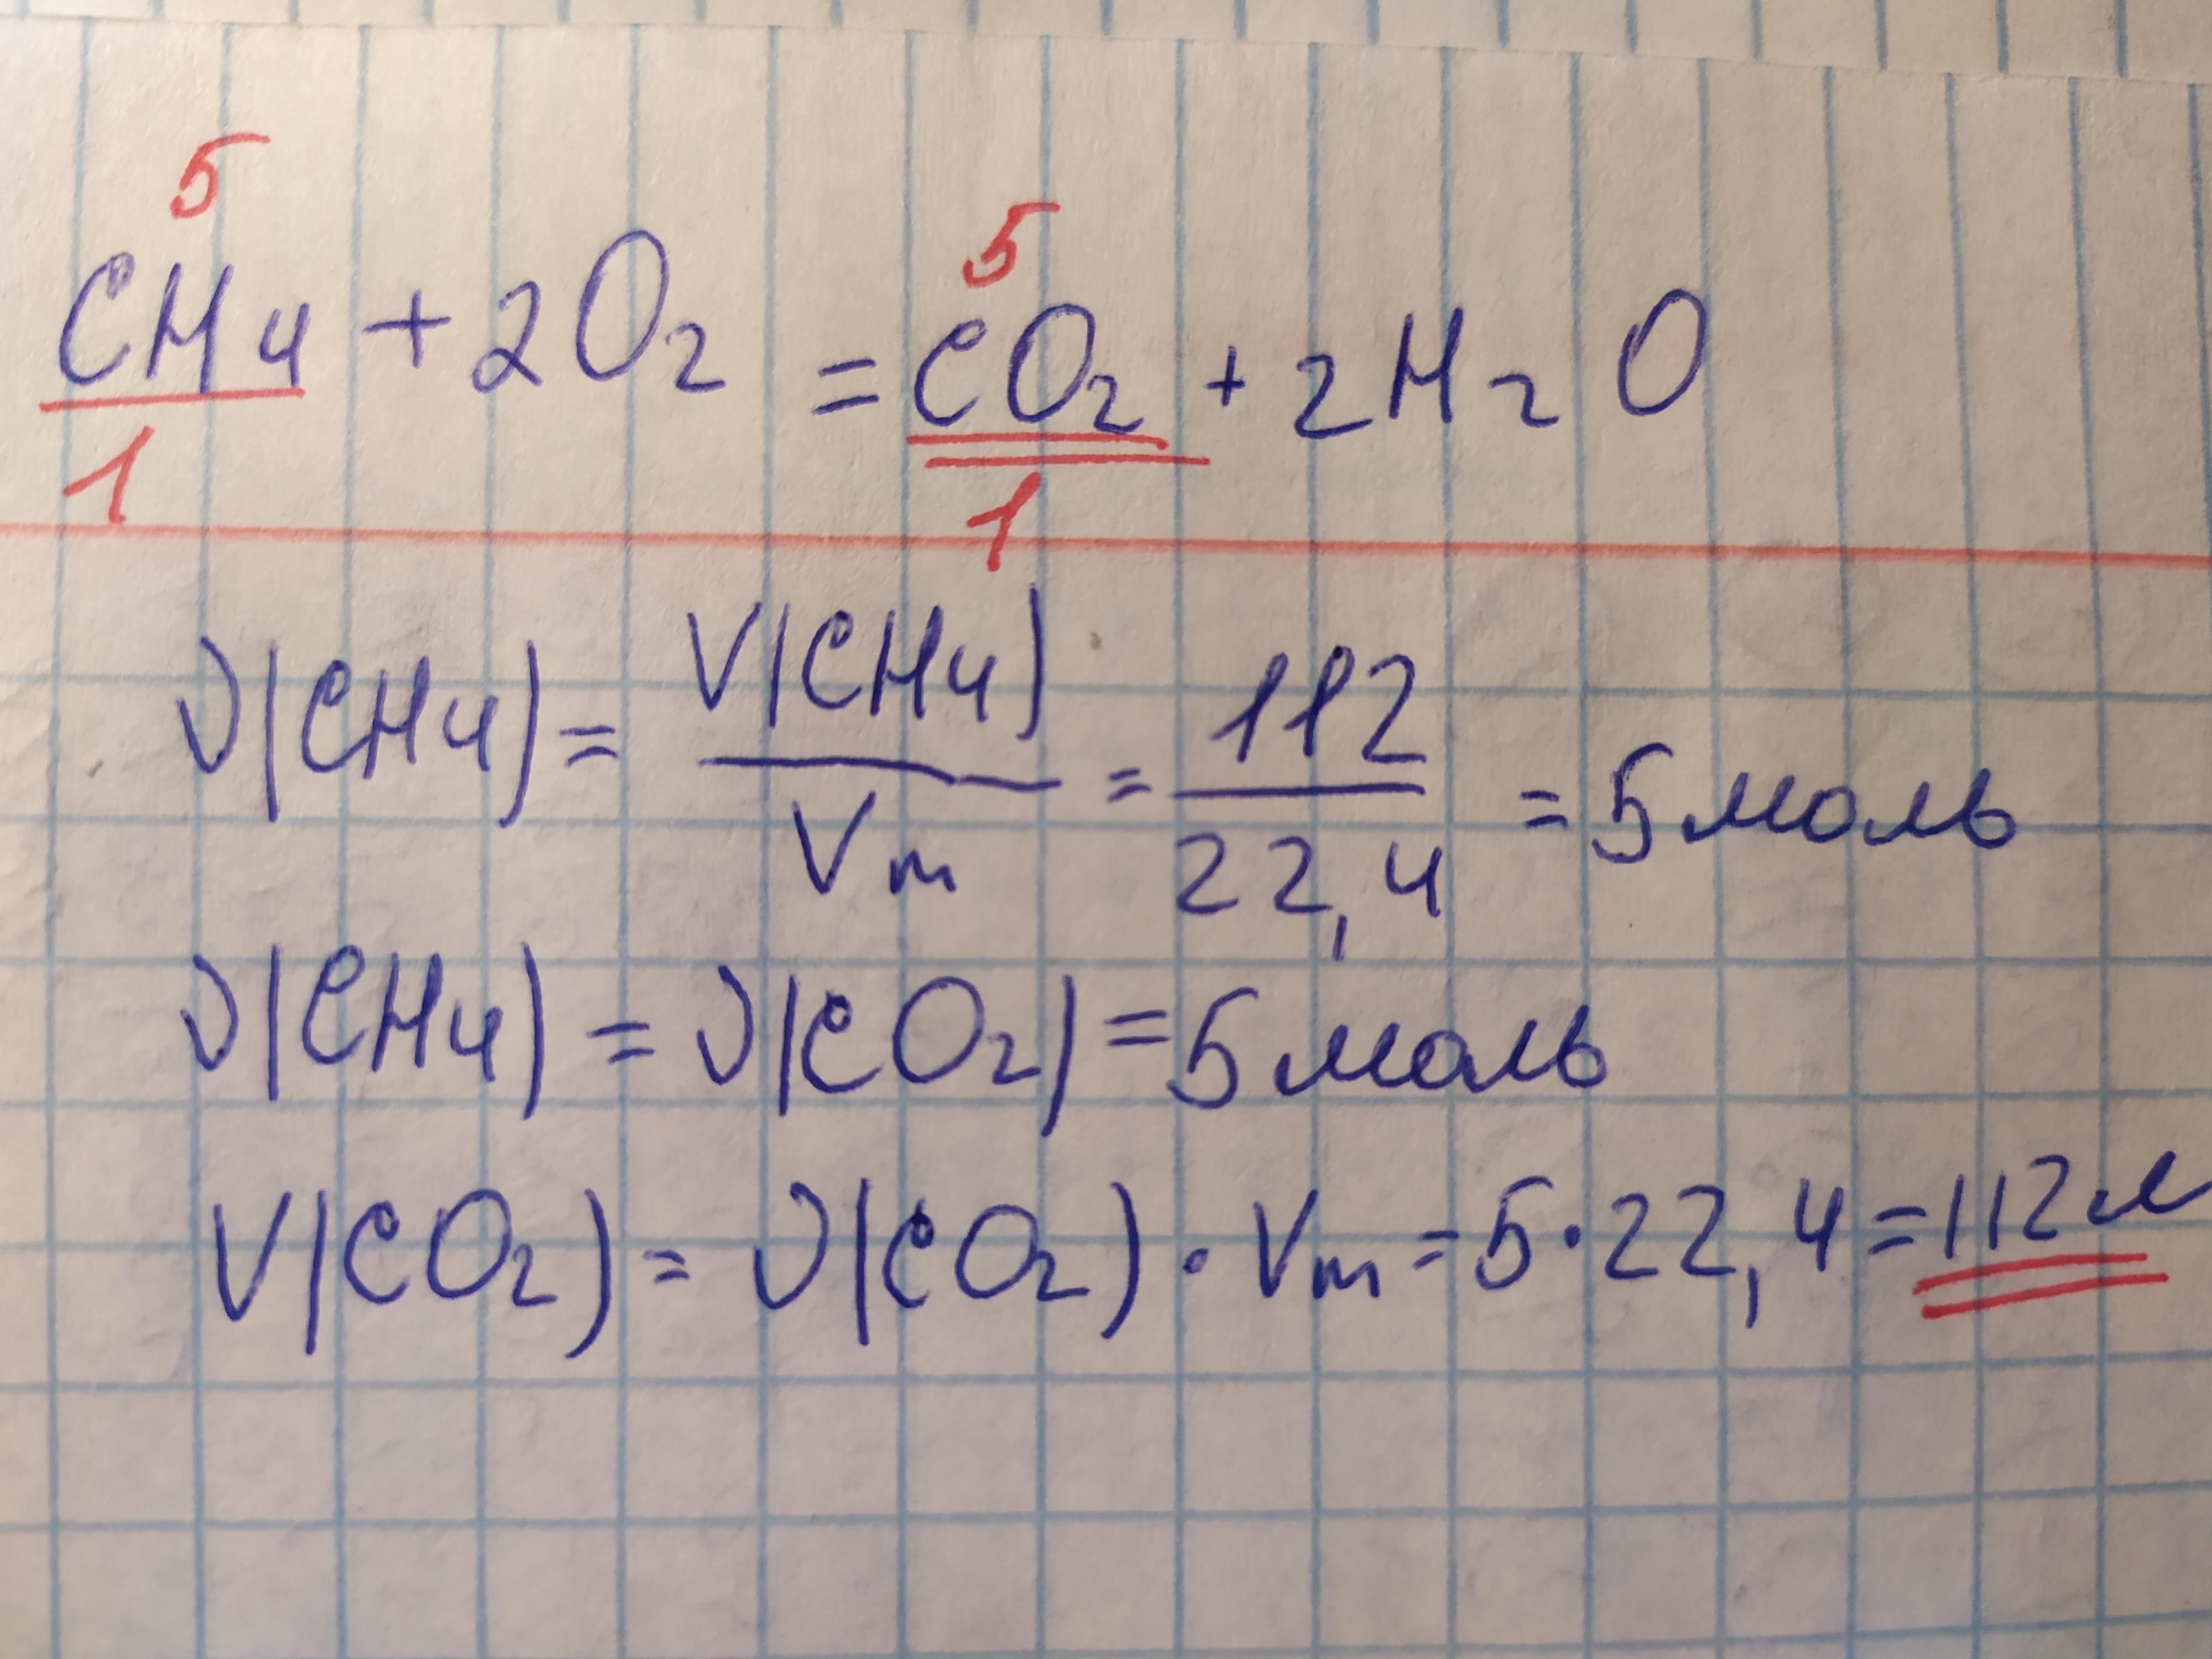 5 5
CH4 + 2O2 = CO2 + 2H2O
1 1
ν(CH4) = V(CH4) / Vm = 112 / 22,4 = 5 моль
ν(CH4) = ν(CO2) = 5 моль
V(CO2) = ν(CO2) · Vm = 5 · 22,4 = 112 л